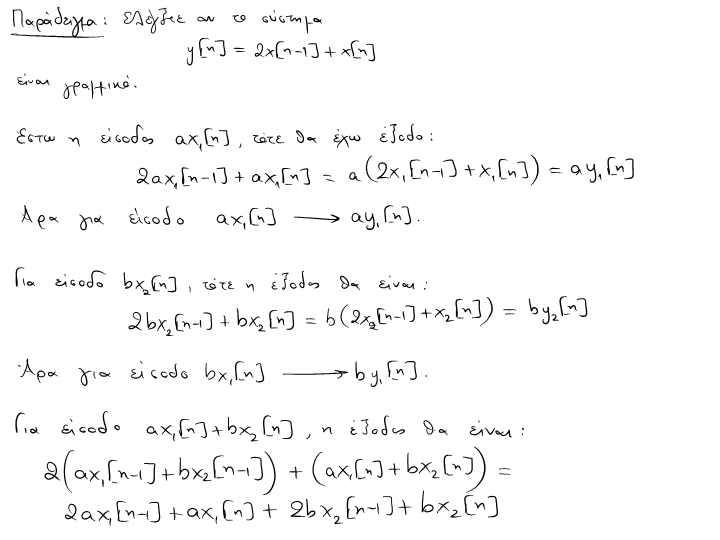 Παράδειγμα: Ελέγξτε αν το σύστημα
y[n] = 2x[n-1] + x[n]
είναι γραμμικό.
Έστω η είσοδος ax₁[n], τότε θα έχω έξοδο:
2ax₁[n-1] + ax₁[n] = a(2x₁[n-1] + x₁[n]) = ay₁[n]
Άρα για είσοδο ax₁[n] ⟶ ay₁[n].
Για είσοδο bx₂[n], τότε η έξοδος θα είναι:
2bx₂[n-1] + bx₂[n] = b(2x₂[n-1] + x₂[n]) = by₂[n]
Άρα για είσοδο bx₁[n] ⟶ by₁[n].
Για είσοδο ax₁[n] + bx₂[n], η έξοδος θα είναι:
2(ax₁[n-1] + bx₂[n-1]) + (ax₁[n] + bx₂[n]) =
2ax₁[n-1] + ax₁[n] + 2bx₂[n-1] + bx₂[n]